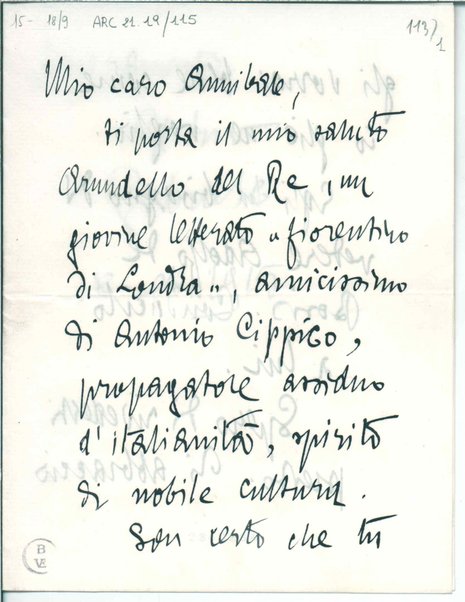 15- 18/9 ARC 21. 19/115 113/1
Mio caro Annibale,
ti porta il mio saluto
Arundello del Re, un
giovine letterato "fiorentino
di Londra", amicissimo
di Antonio Cippico,
propagatore assiduo
d'italianità, spirito
di nobile cultura.
Son certo che tu
B
VE